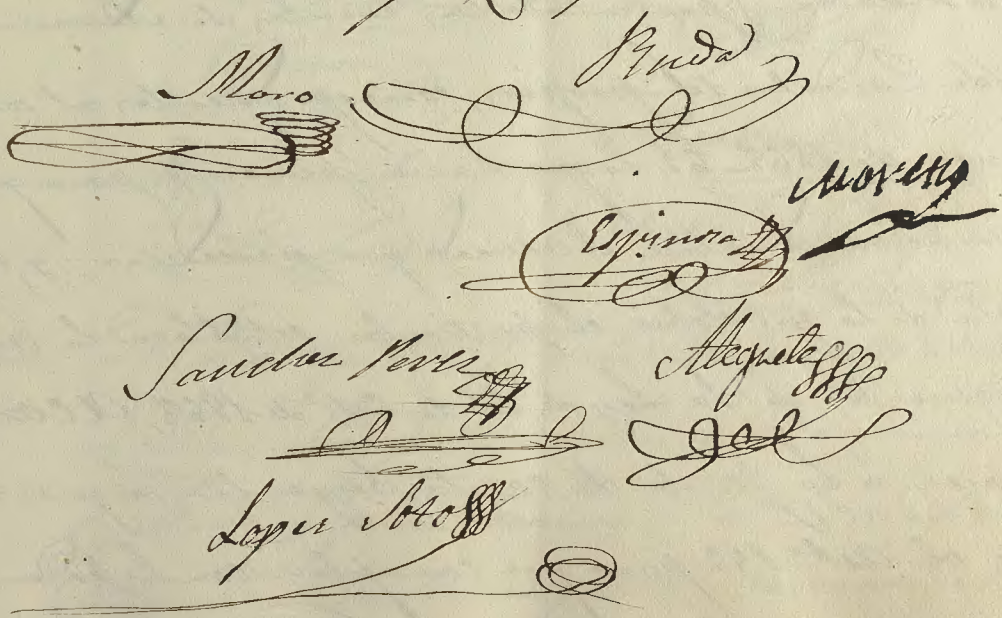 Moro
Rueda
Moreno
Espinosa
Sanchez Perez
Alegrete
Lopez Soto